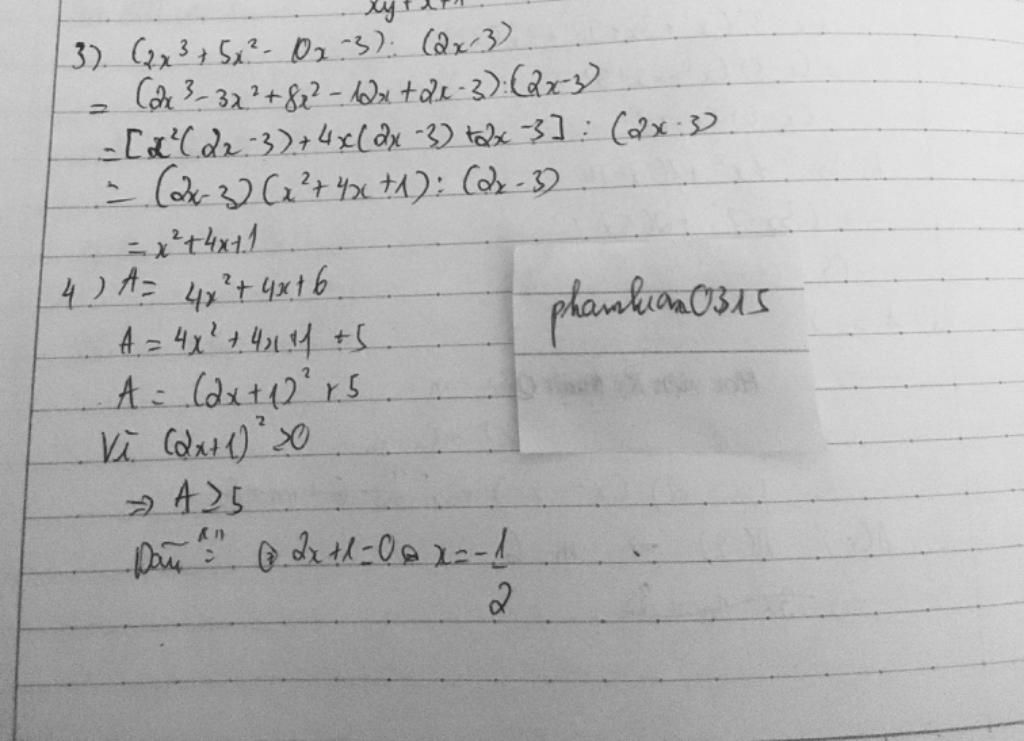 xy+x+1
3). (2x³ + 5x² - 10x - 3) : (2x-3)
= (2x³ - 3x² + 8x² - 12x + 2x - 3) : (2x-3)
= [x²(2x-3) + 4x(2x-3) + 2x-3] : (2x-3)
= (2x-3)(x² + 4x + 1) : (2x-3)
= x² + 4x + 1
4) A = 4x² + 4x + 6
A = 4x² + 4x + 1 + 5
A = (2x+1)² + 5
phamhuan0315
Vì (2x+1)² ≥ 0
⇒ A ≥ 5
Dấu "=" ⇔ 2x+1=0 ⇔ x = -1/2